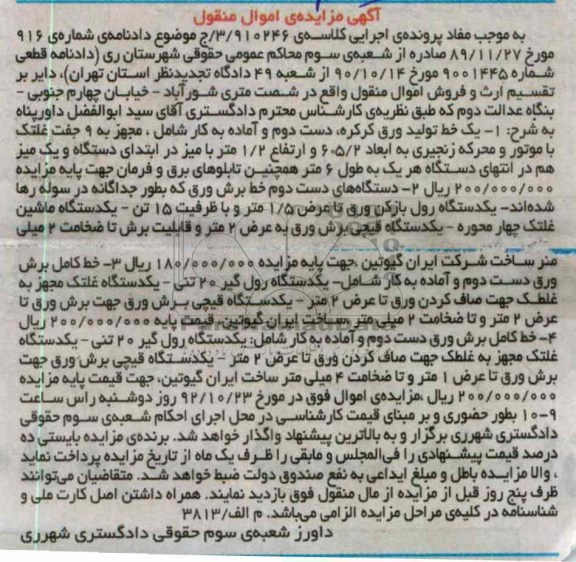 آگهی مزایده‌ی اموال منقول
به موجب مفاد پرونده‌ی اجرایی کلاسه‌ی ۳/۹۱۰۲۴۶/ج موضوع دادنامه‌ی شماره‌ی ۹۱۶
مورخ ۸۹/۱۱/۲۷ صادره از شعبه‌ی سوم محاکم عمومی حقوقی شهرستان ری (دادنامه قطعی
شماره ۹۰۰۱۴۴۵ مورخ ۹۰/۱۰/۱۴ از شعبه ۴۹ دادگاه تجدیدنظر استان تهران)، دایر بر
تقسیم ارث و فروش اموال منقول واقع در شصت متری شورآباد - خیابان چهارم جنوبی -
بنگاه عدالت دوم که طبق نظریه‌ی کارشناس محترم دادگستری آقای سید ابوالفضل داورپناه
به شرح: ۱- یک خط تولید ورق کرکره، دست دوم و آماده به کار شامل ، مجهز به ۹ جفت غلتک
با موتور و محرکه زنجیری به ابعاد ۵/۲-۶ و ارتفاع ۱/۲ متر با میز در ابتدای دستگاه و یک میز
هم در انتهای دستگاه هر یک به طول ۶ متر همچنین تابلوهای برق و فرمان جهت پایه مزایده
۲۰۰/۰۰۰/۰۰۰ ریال ۲- دستگاه‌های دست دوم خط برش ورق که بطور جداگانه در سوله رها
شده‌اند- یکدستگاه رول بازکن ورق تا عرض ۱/۵ متر و با ظرفیت ۱۵ تن - یکدستگاه ماشین
غلتک چهار محوره - یکدستگاه قیچی برش ورق به عرض ۲ متر و قابلیت برش تا ضخامت ۲ میلی
متر ساخت شرکت ایران گیوتین ،جهت پایه مزایده ۱۸۰/۰۰۰/۰۰۰ ریال ۳- خط کامل برش
ورق دست دوم و آماده به کار شامل- یکدستگاه رول گیر ۲۰ تنی - یکدستگاه غلتک مجهز به
غلطک جهت صاف کردن ورق تا عرض ۲ متر - یکدستگاه قیچی برش ورق جهت برش ورق تا
عرض ۲ متر و تا ضخامت ۲ میلی متر ،ساخت ایران گیوتین. قیمت پایه ۲۰۰/۰۰۰/۰۰۰ ریال
۴- خط کامل برش ورق دست دوم و آماده به کار شامل: یکدستگاه رول گیر ۲۰ تنی - یکدستگاه
غلتک مجهز به غلطک جهت صاف کردن ورق تا عرض ۲ متر - یکدستگاه قیچی برش ورق جهت
برش ورق تا عرض ۱ متر و تا ضخامت ۴ میلی متر ساخت ایران گیوتین، جهت قیمت پایه مزایده
۲۰۰/۰۰۰/۰۰۰ ریال ،مزایده‌ی اموال فوق در مورخ ۹۲/۱۰/۲۳ روز دوشنبه راس ساعت
۹-۱۰ بطور حضوری و بر مبنای قیمت کارشناسی در محل اجرای احکام شعبه‌ی سوم حقوقی
دادگستری شهرری برگزار و به بالاترین پیشنهاد واگذار خواهد شد. برنده‌ی مزایده بایستی ده
درصد قیمت پیشنهادی را فی‌المجلس و مابقی را ظرف یک ماه از تاریخ مزایده پرداخت نماید
، والا مزایده باطل و مبلغ ایداعی به نفع صندوق دولت ضبط خواهد شد. متقاضیان می‌توانند
ظرف پنج روز قبل از مزایده از مال منقول فوق بازدید نمایند. همراه داشتن اصل کارت ملی و
شناسنامه در کلیه‌ی مراحل مزایده الزامی می‌باشد. م الف/۳۸۱۳
داورز شعبه‌ی سوم حقوقی دادگستری شهرری